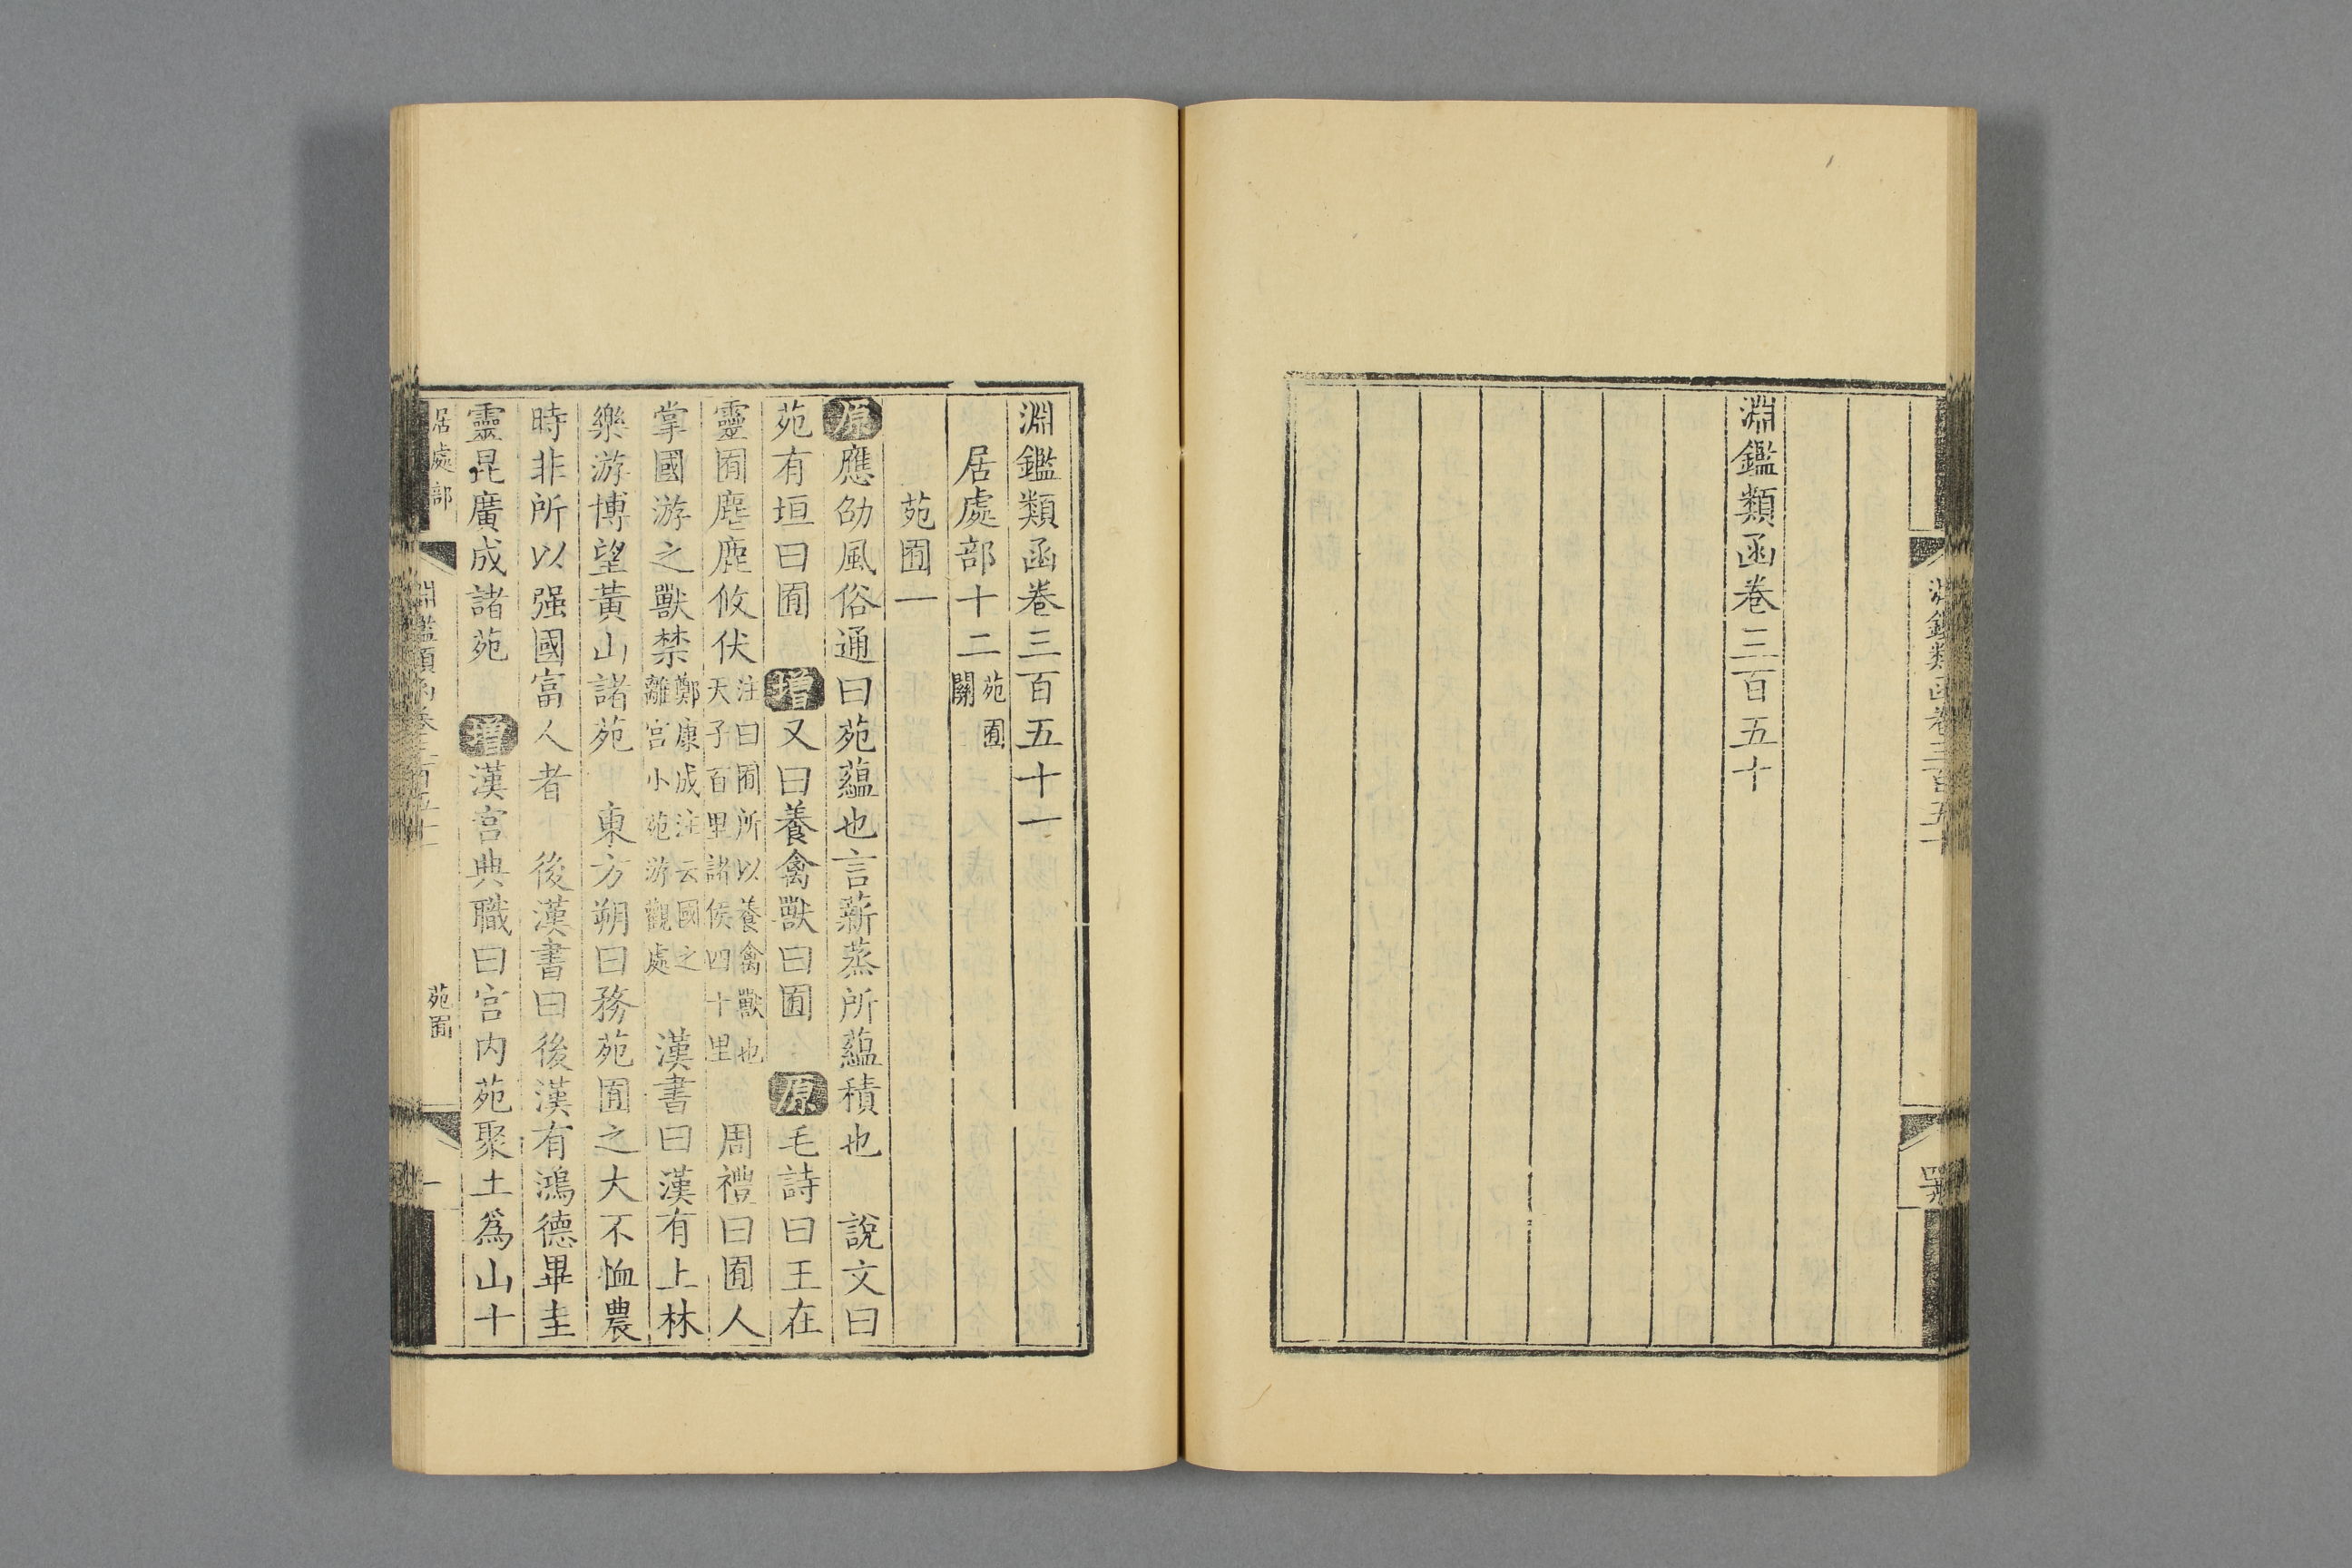 淵鑑類函卷三百五十
淵鑑類函卷三百五十
淵鑑類函卷三百五十一
居處部十二苑囿
關
苑囿一
原應劭風俗通曰苑蘊也言薪蒸所蘊積也　說文曰
苑有垣曰囿　增又曰養禽獸曰囿　原毛詩曰王在
靈囿麀鹿攸伏注曰囿所以養禽獸也
天子百里諸侯四十里　周禮曰囿人
掌國游之獸禁鄭康成注云國之
離宮小苑游觀處　漢書曰漢有上林
樂游博望黃山諸苑　東方朔曰務苑囿之大不恤農
時非所以强國富人者　後漢書曰後漢有鴻德畢圭
靈昆廣成諸苑　增漢宮典職曰宮內苑聚土爲山十
居處部　淵鑑類函卷三百五十一　苑囿　一